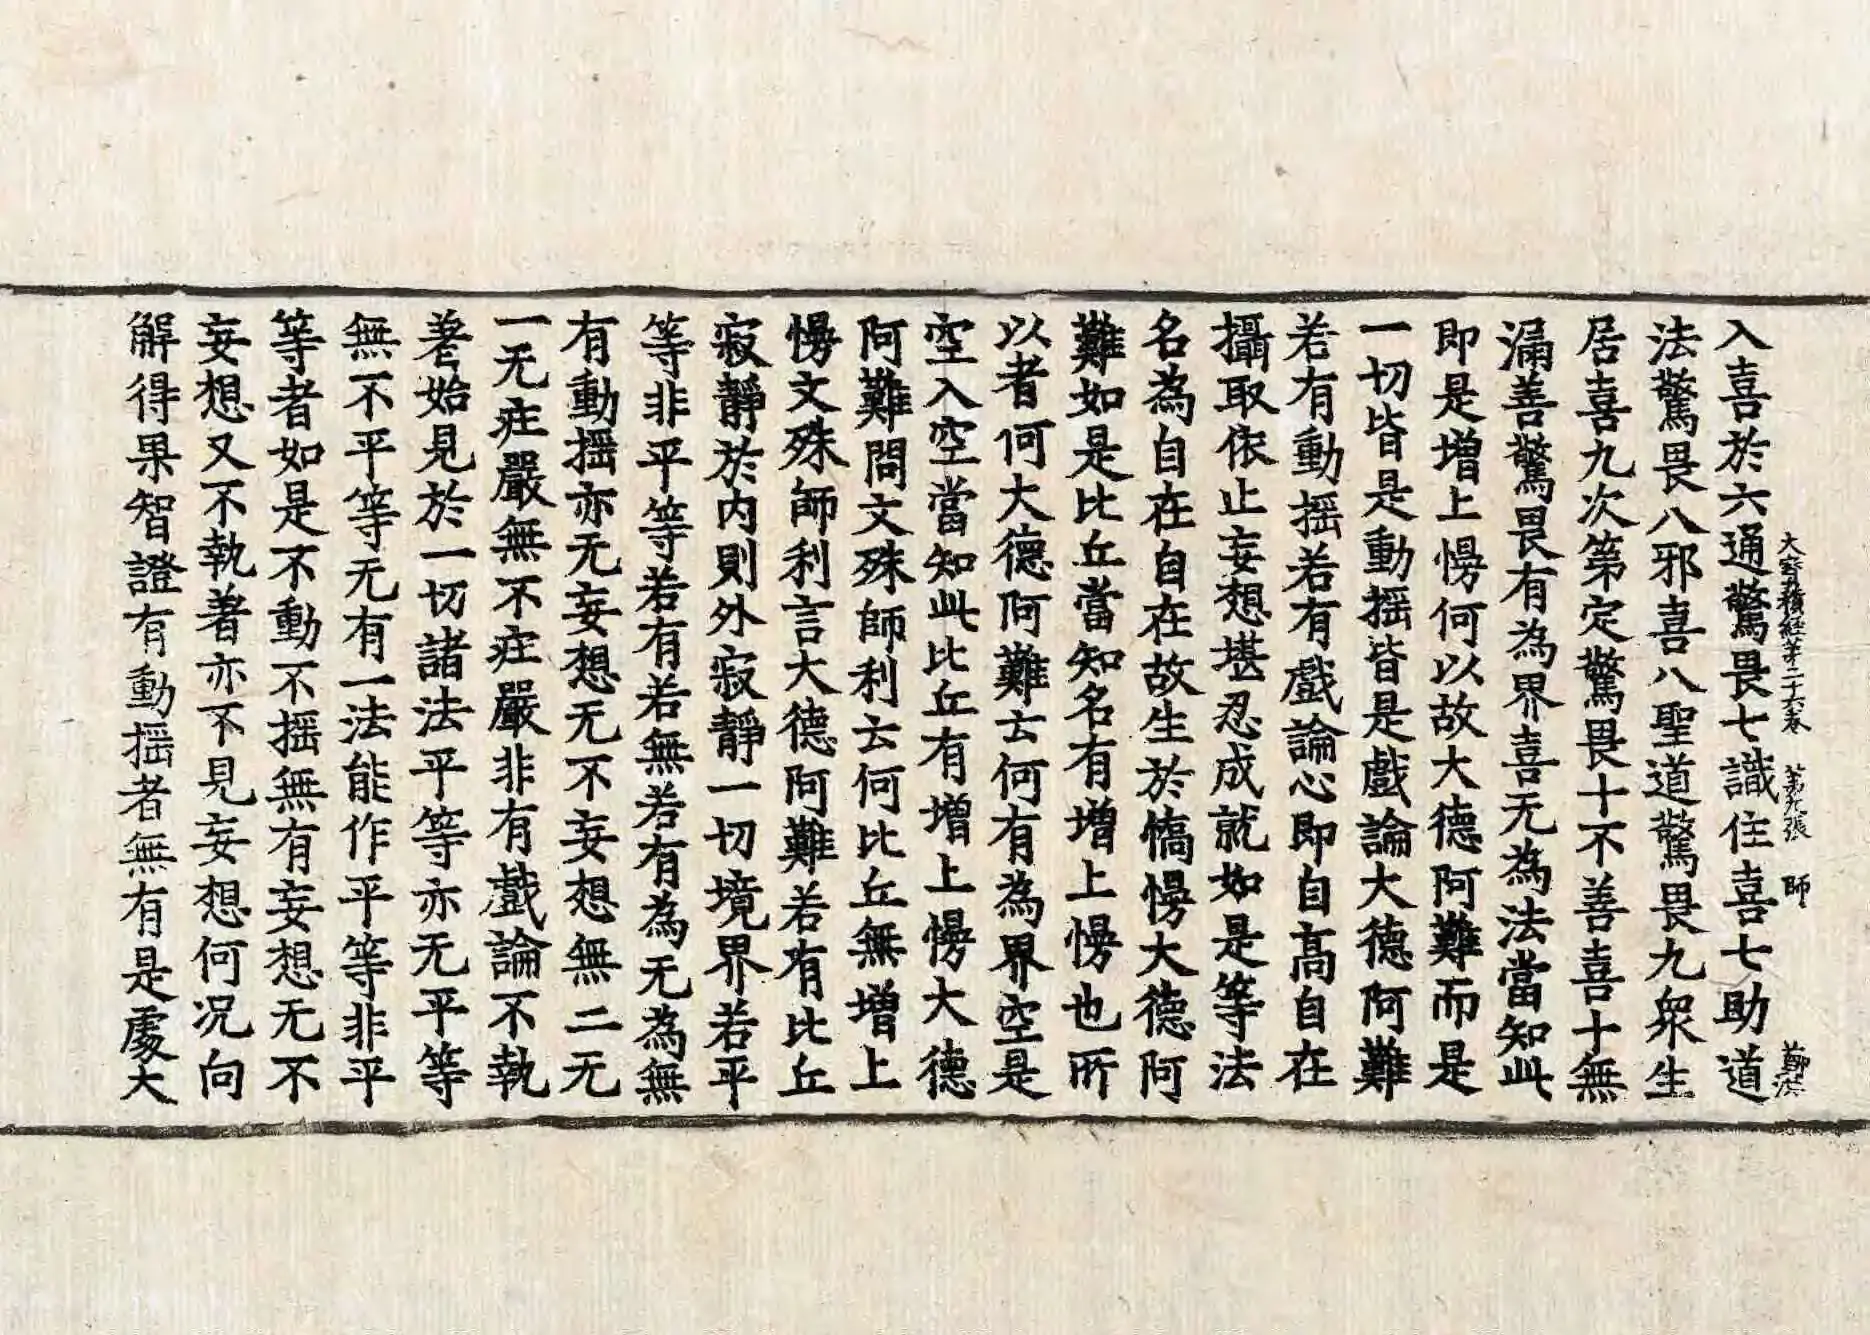 大寶積經第二十六卷 第九張 師
入喜於六通驚畏七識住喜七助道
法驚畏八邪喜八聖道驚畏九衆生
居喜九次第定驚畏十不善喜十無
漏善驚畏有為界喜无為法當知此
即是增上慢何以故大德阿難而是
一切皆是動揺皆是戲論大德阿難
若有動揺若有戲論心即自高自在
攝取依止妄想堪忍成就如是等法
名為自在自在故生於憍慢大德阿
難如是比丘當知名有增上慢也所
以者何大德阿難云何有為界空是
空入空當知此比丘有增上慢大德
阿難問文殊師利云何比丘無增上
慢文殊師利言大德阿難若有比丘
寂靜於内則外寂靜一切境界若平
等非平等若有若無若有為无為無
有動揺亦无妄想无不妄想無二无
一无疰嚴無不疰嚴非有戲論不執
著始見於一切諸法平等亦无平等
無不平等无有一法能作平等非平
等者如是不動不揺無有妄想无不
妄想又不執著亦不見妄想何况向
解得果智證有動揺者無有是處大